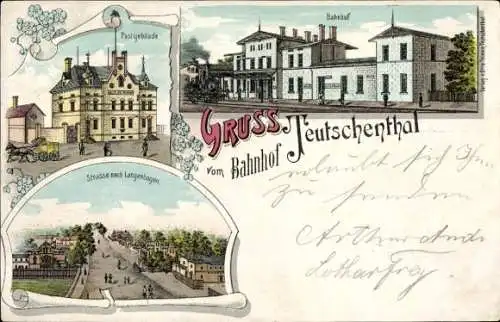 Postgebäude
Bahnhof
GRUSS
vom Bahnhof Teutschenthal
Strasse nach Langenbogen
erlaubt sich Ihnen
zu senden
Arthur
Lothar Frey